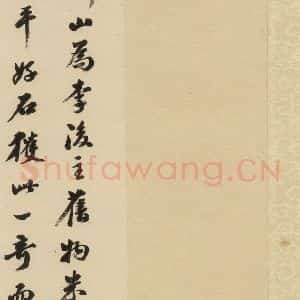 山為李後主舊物米
平好石獲此一奇而
Shufawang.CN